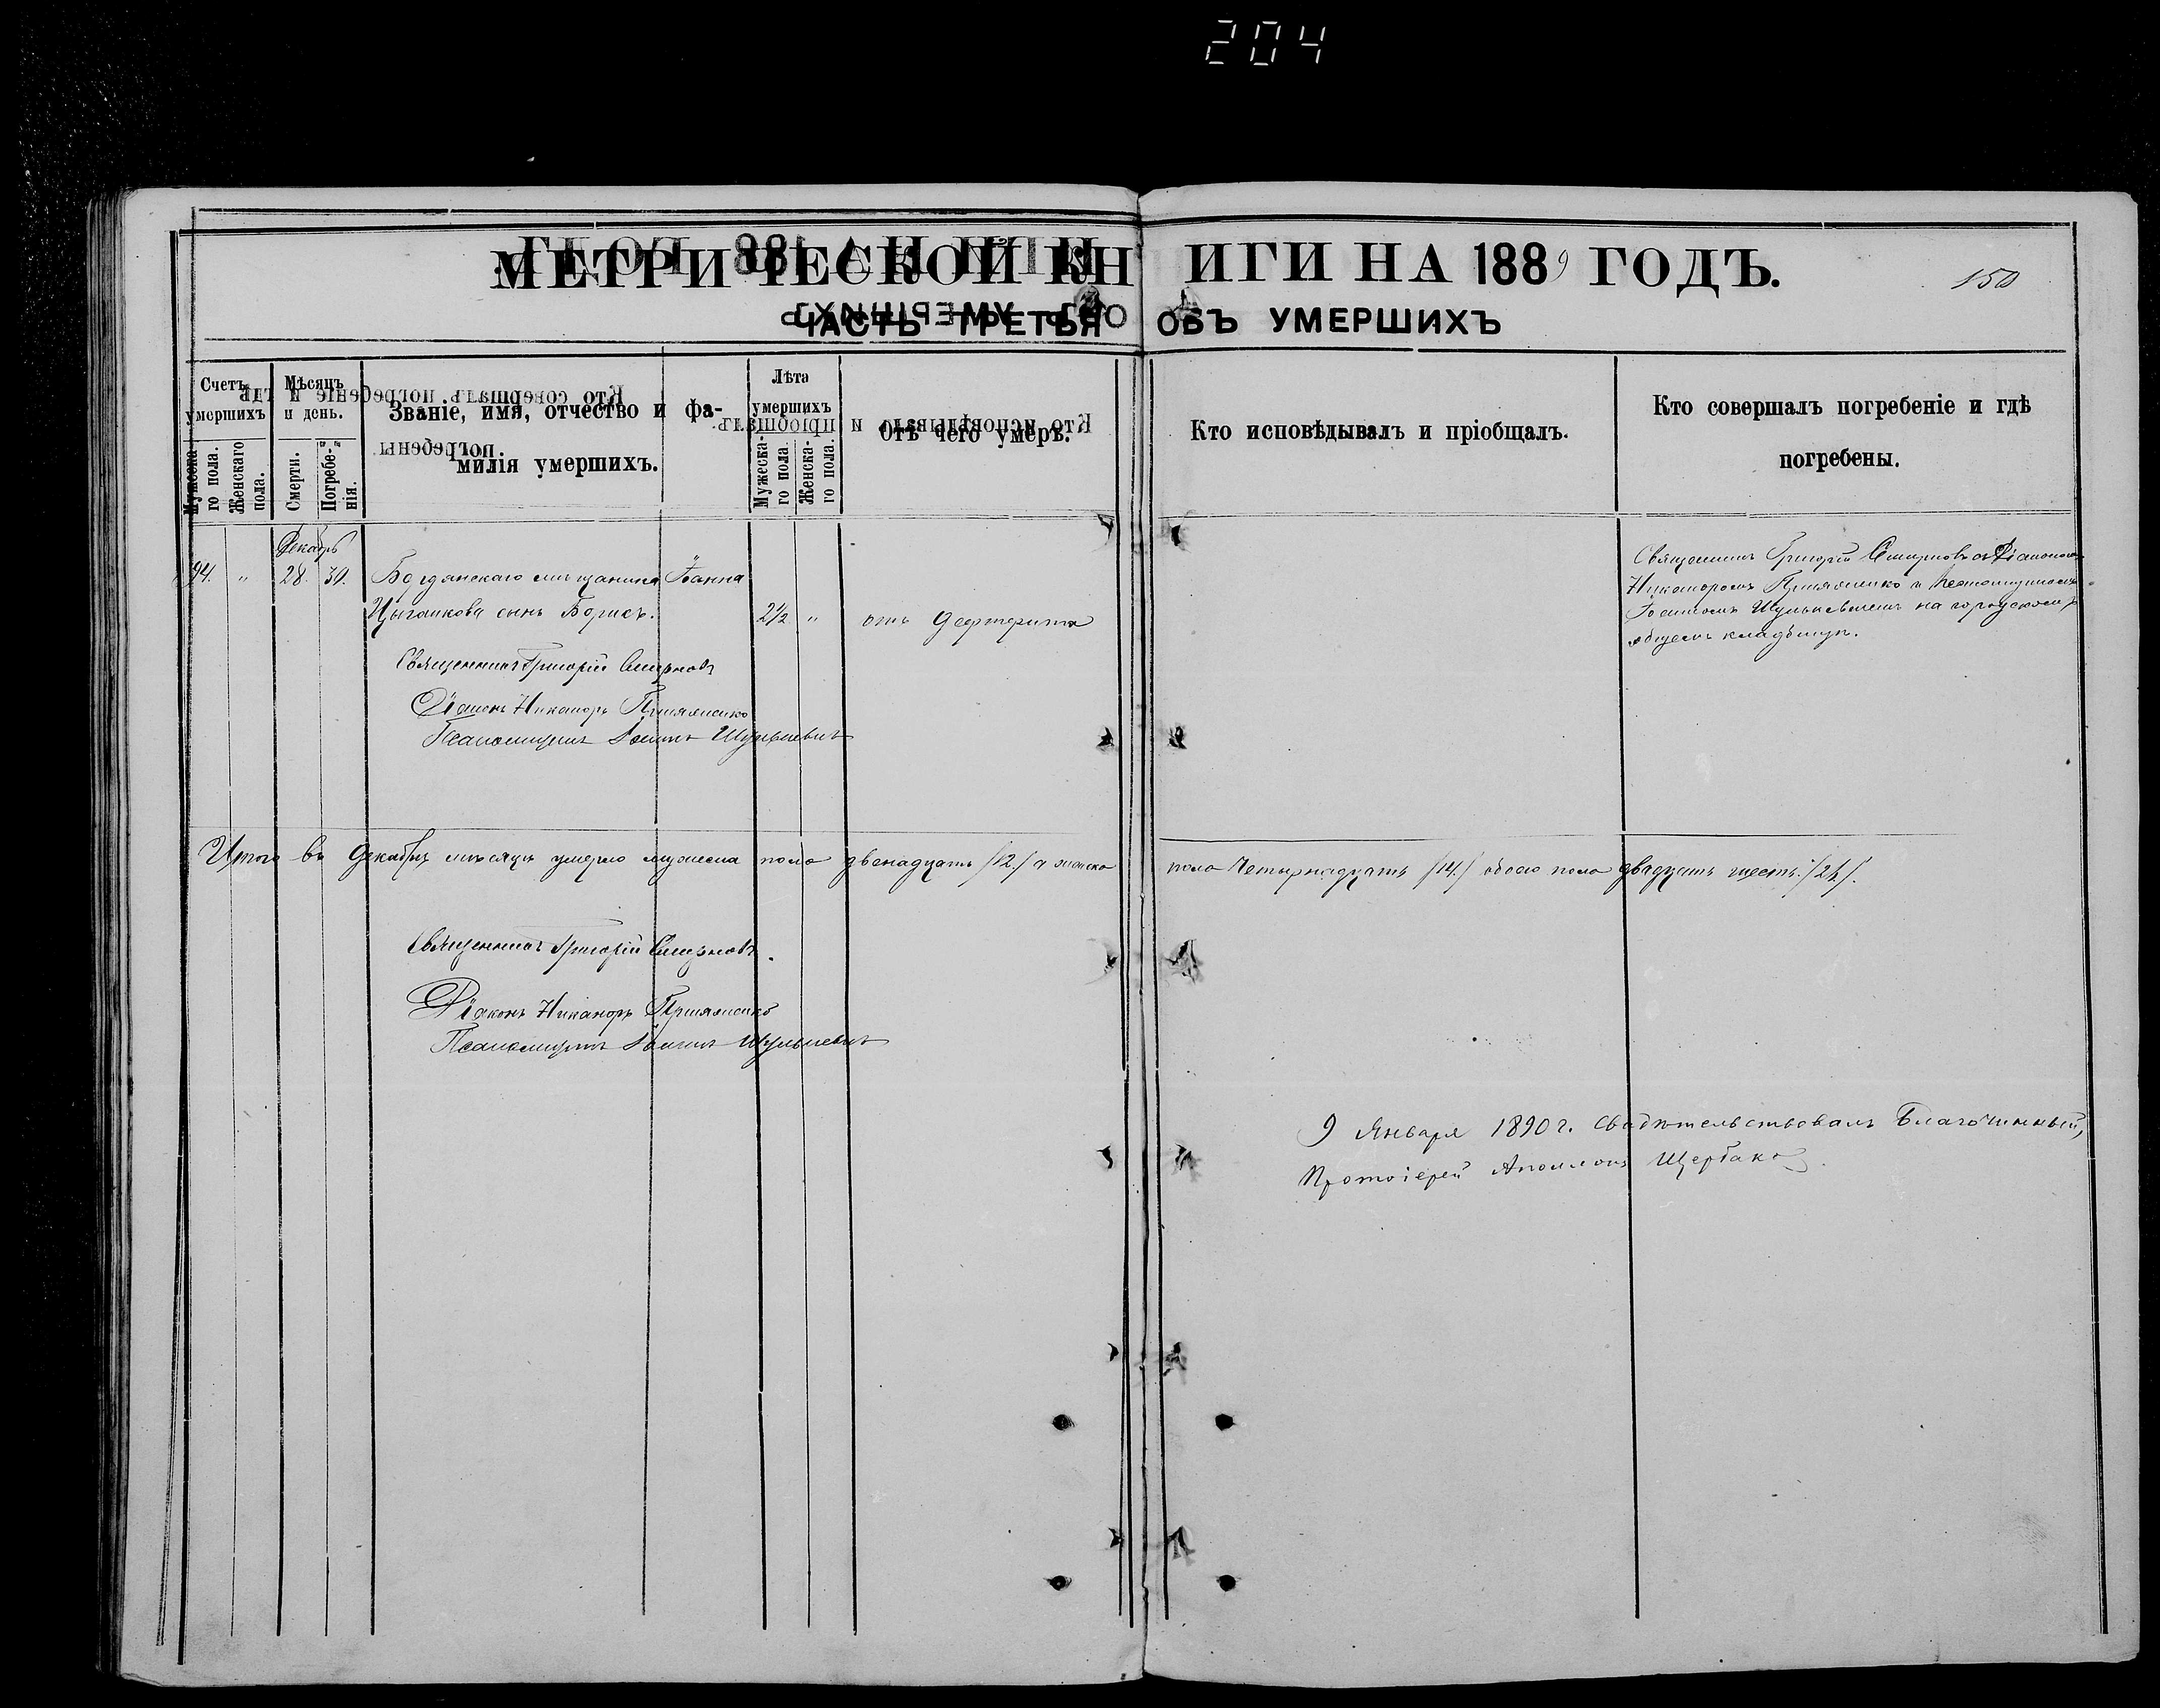 204
МЕТРИЧЕСКОЙ КНИГИ НА 1889 ГОДЪ.
150
ЧАСТЬ ТРЕТЬЯ ОБЪ УМЕРШИХЪ
Счетъ умершихъ
Мужеска-го пола.
Женскаго пола.
Мѣсяцъ и день.
Смерти.
Погребе-нія.
Званіе, имя, отчество и фа-
милія умершихъ.
Лѣта умершихъ
Мужеска-го пола
Женска-го пола.
Отъ чего умеръ.
Кто исповѣдывалъ и пріобщалъ.
Кто совершалъ погребеніе и гдѣ
погребены.
Декабрь
94. " 28. 30. мѣщанина Іоанна
Цыганкова сынъ Борисъ. 2½ " отъ дефтерита
Священникъ Григорій Смирновъ съ Діакономъ
Никаноромъ и Псаломщикомъ
на городскомъ
общемъ кладбищѣ.
Священникъ Григорій Смирновъ
Діаконъ Никаноръ
Псаломщикъ
Итого въ Декабрѣ мѣсяцѣ умерло мужеска пола двенадцать /12./ а женска пола четырнадцать /14./ обоего пола двадцать шесть /26/.
Священникъ Григорій Смирновъ.
Діаконъ Никаноръ
Псаломщикъ
9 Января 1890 г. свидѣтельствовалъ Благочинный,
Протоіерей Аполлонъ Щербаковъ